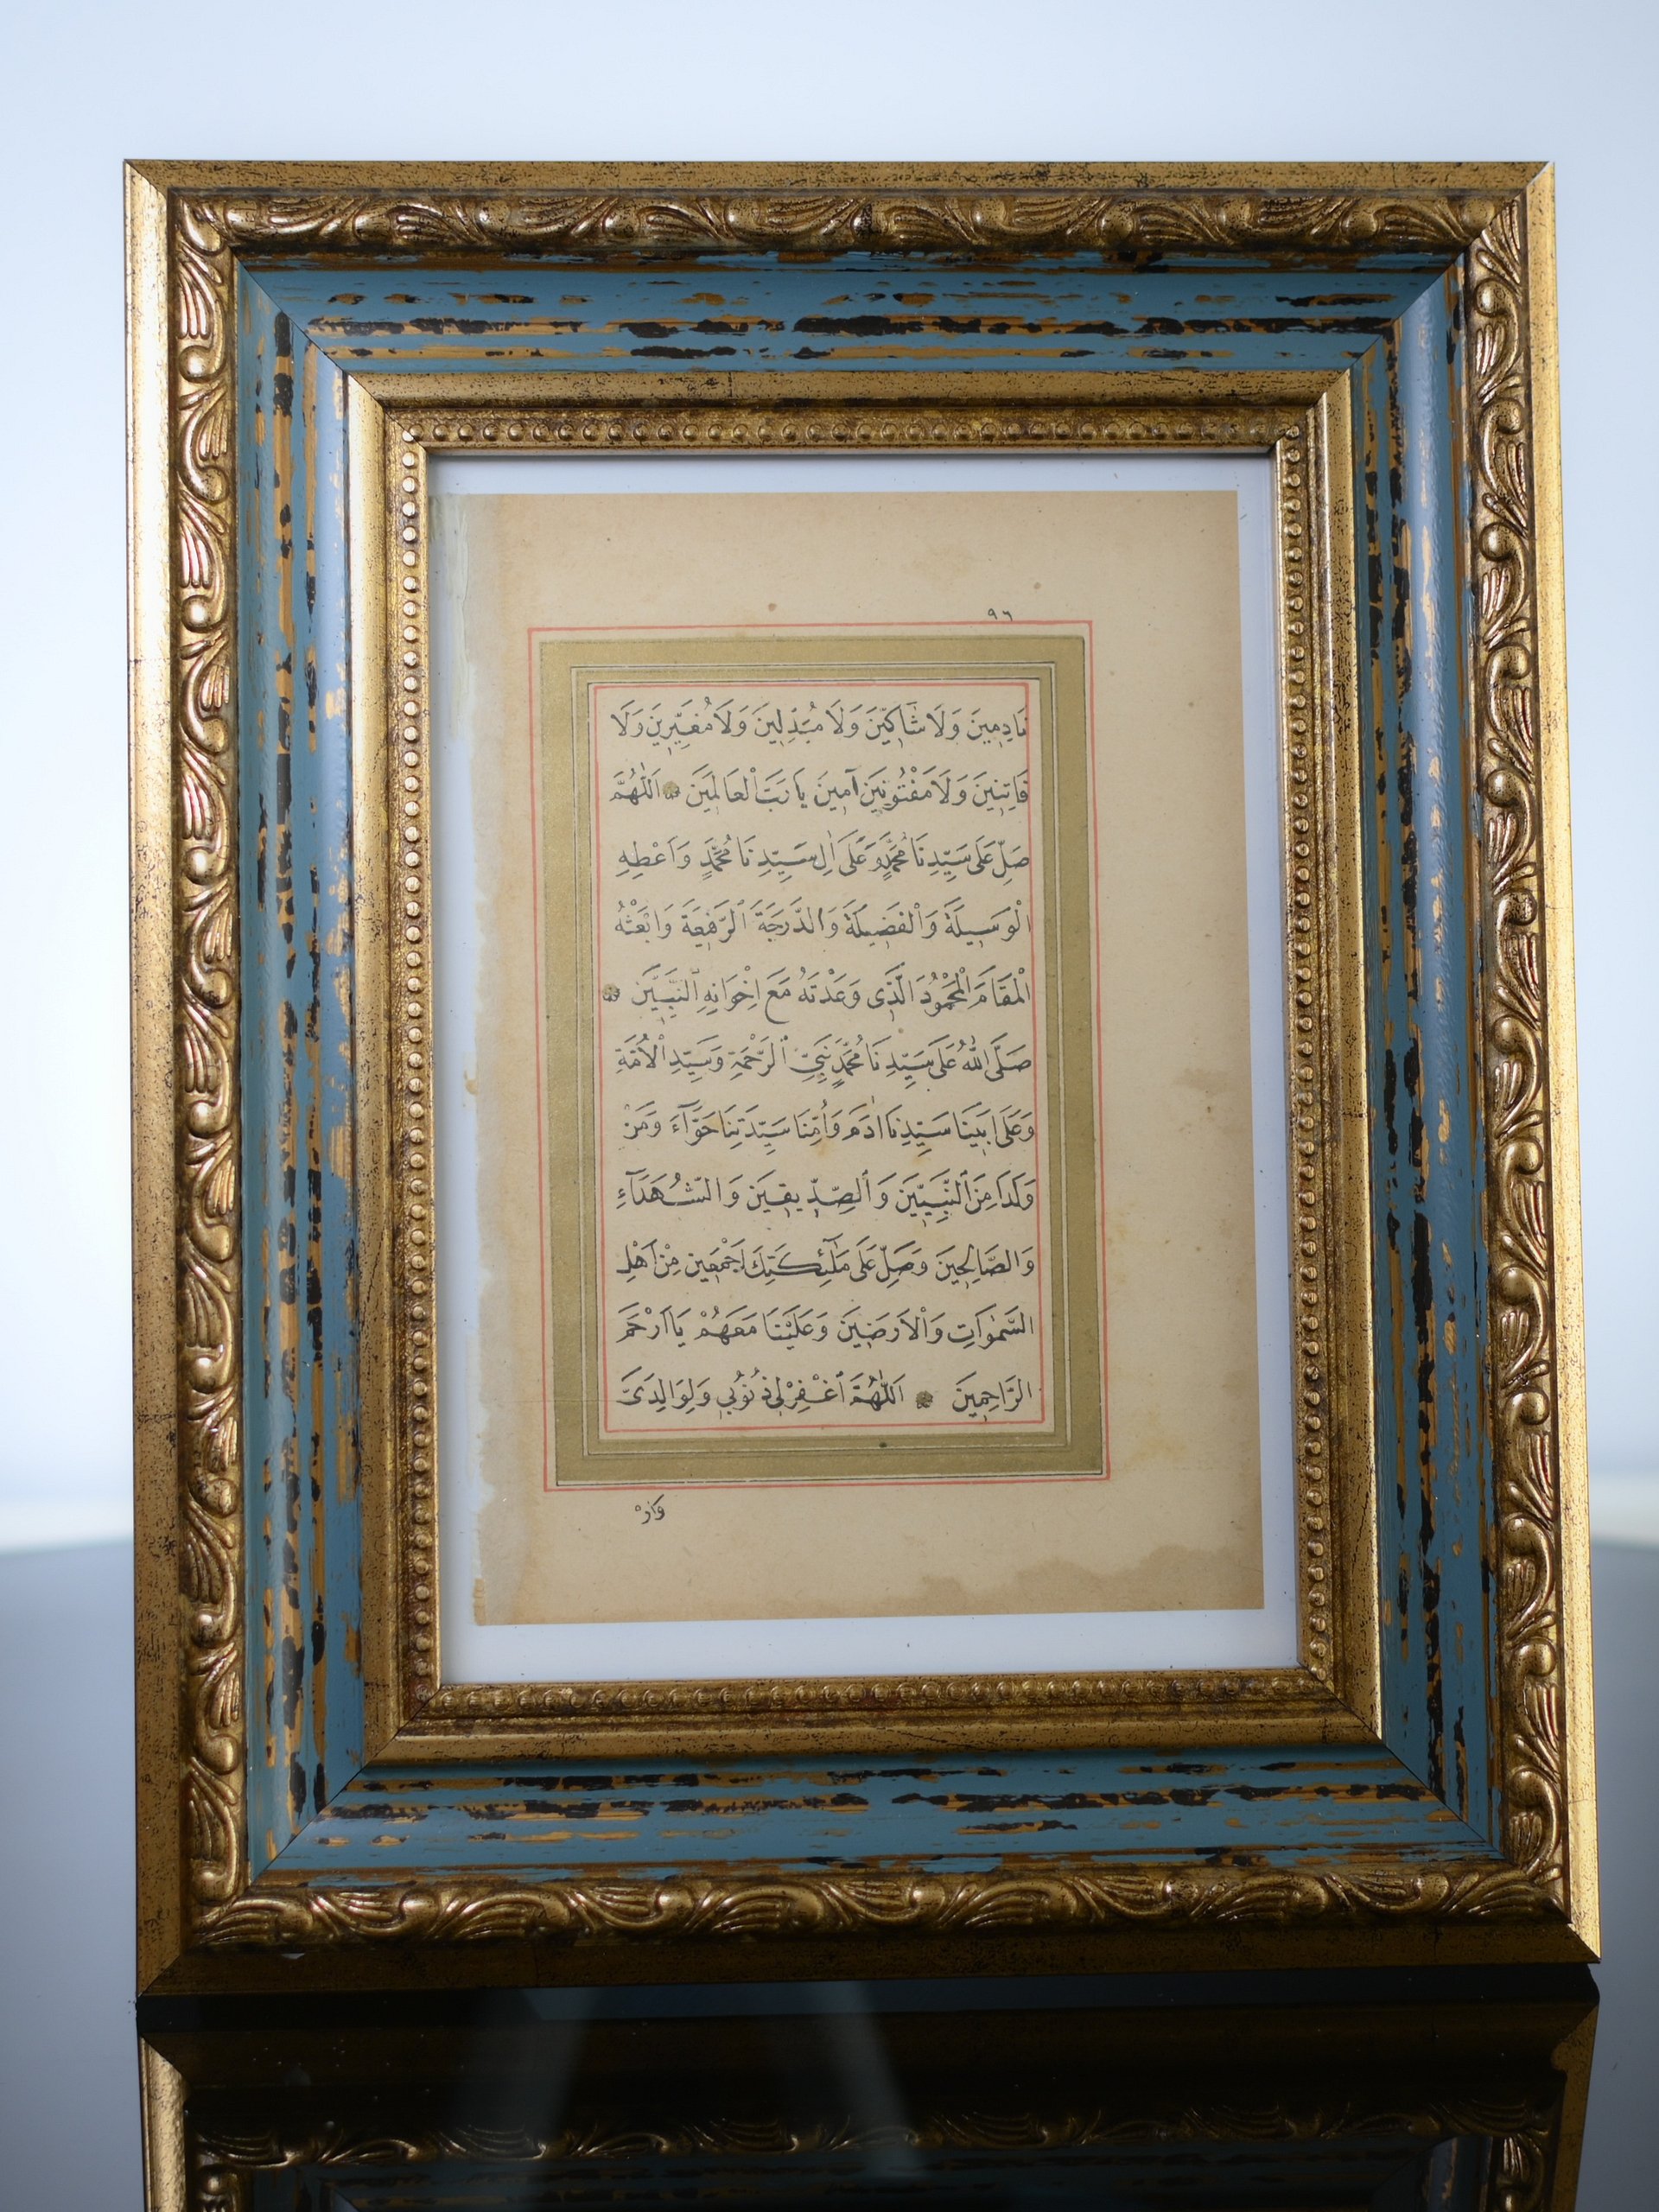 ٩٦
نَادِمِينَ وَلَا شَاكِّينَ وَلَا مُبَدِّلِينَ وَلَا مُغَيِّرِينَ وَلَا
فَاتِنِينَ وَلَا مَفْتُونِينَ آمِينَ يَا رَبَّ الْعَالَمِينَ اَللّٰهُمَّ
صَلِّ عَلَى سَيِّدِنَا مُحَمَّدٍ وَعَلَى اٰلِ سَيِّدِنَا مُحَمَّدٍ وَاَعْطِهِ
الْوَسِيلَةَ وَالْفَضِيلَةَ وَالدَّرَجَةَ الرَّفِيعَةَ وَابْعَثْهُ
الْمَقَامَ الْمَحْمُودَ الَّذِى وَعَدْتَهُ مَعَ اِخْوَانِهِ النَّبِيِّينَ
صَلَّى اللّٰهُ عَلَى سَيِّدِنَا مُحَمَّدٍ نَبِيِّ الرَّحْمَةِ وَسَيِّدِ الْاُمَّةِ
وَعَلَى اَبِينَا سَيِّدِنَا اٰدَمَ وَاُمِّنَا سَيِّدَتِنَا حَوَّآءَ وَمَنْ
وَلَدَا مِنَ النَّبِيِّينَ وَالصِّدِّيقِينَ وَالشُّهَدَآءِ
وَالصَّالِحِينَ وَصَلِّ عَلَى مَلٰٓئِكَتِكَ اَجْمَعِينَ مِنْ اَهْلِ
السَّمٰوَاتِ وَالْاَرَضِينَ وَعَلَيْنَا مَعَهُمْ يَا اَرْحَمَ
الرَّاحِمِينَ اَللّٰهُمَّ اغْفِرْ لِى ذُنُوبِى وَلِوَالِدَىَّ
وَارْ